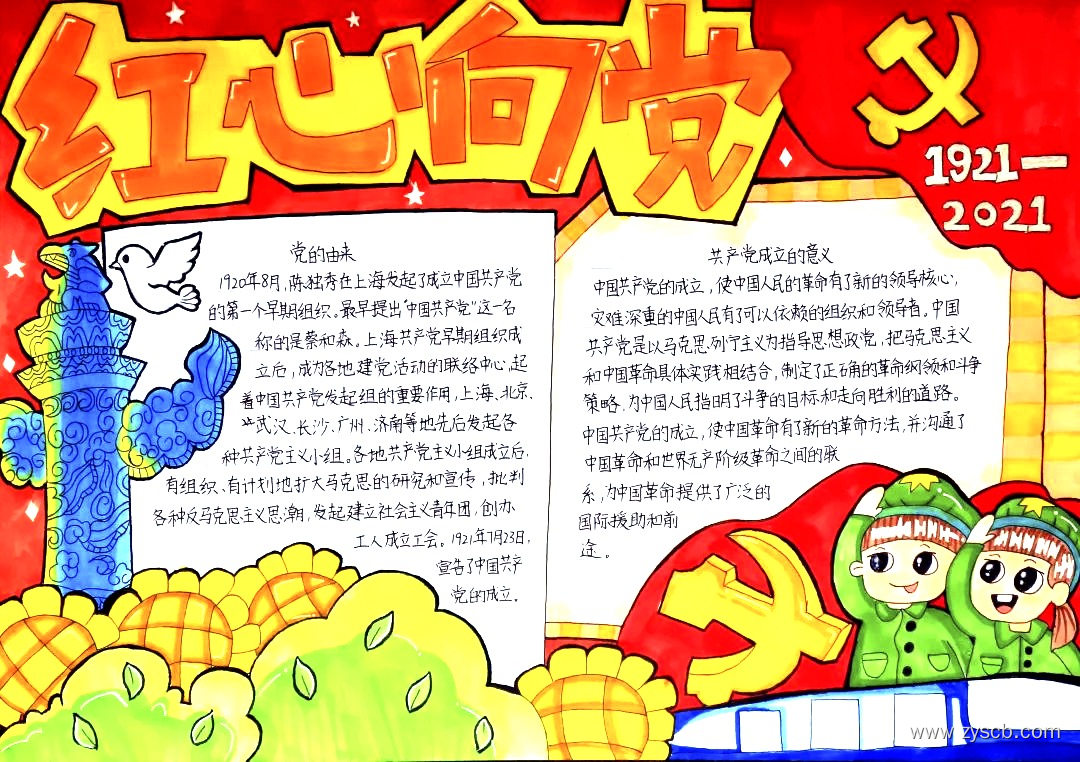 红心向党
1921—
2021
党的由来
1920年8月,陈独秀在上海发起了成立中国共产党
的第一个早期组织。最早提出“中国共产党”这一名
称的是蔡和森。上海共产党早期组织成
立后,成为各地建党活动的联络中心,起
着中国共产党发起组的重要作用,上海、北京、
武汉、长沙、广州、济南等地先后发起各
种共产党主义小组。各地共产党主义小组成立后,
有组织、有计划地扩大马克思的研究和宣传,批判
各种反马克思主义思潮,发起建立社会主义青年团,创办
工人成立工会。1921年7月23日,
宣告了中国共产
党的成立。
共产党成立的意义
中国共产党的成立,使中国人民的革命有了新的领导核心;
灾难深重的中国人民有了可以依赖的组织和领导者。中国
共产党是以马克思列宁主义为指导思想政党,把马克思主义
和中国革命具体实践相结合,制定了正确的革命纲领和斗争
策略,为中国人民指明了斗争的目标和走向胜利的道路。
中国共产党的成立,使中国革命有了新的革命方法,并沟通了
中国革命和世界无产阶级革命之间的联
系,为中国革命提供了广泛的
国际援助和前
途。
www.zyscb.com